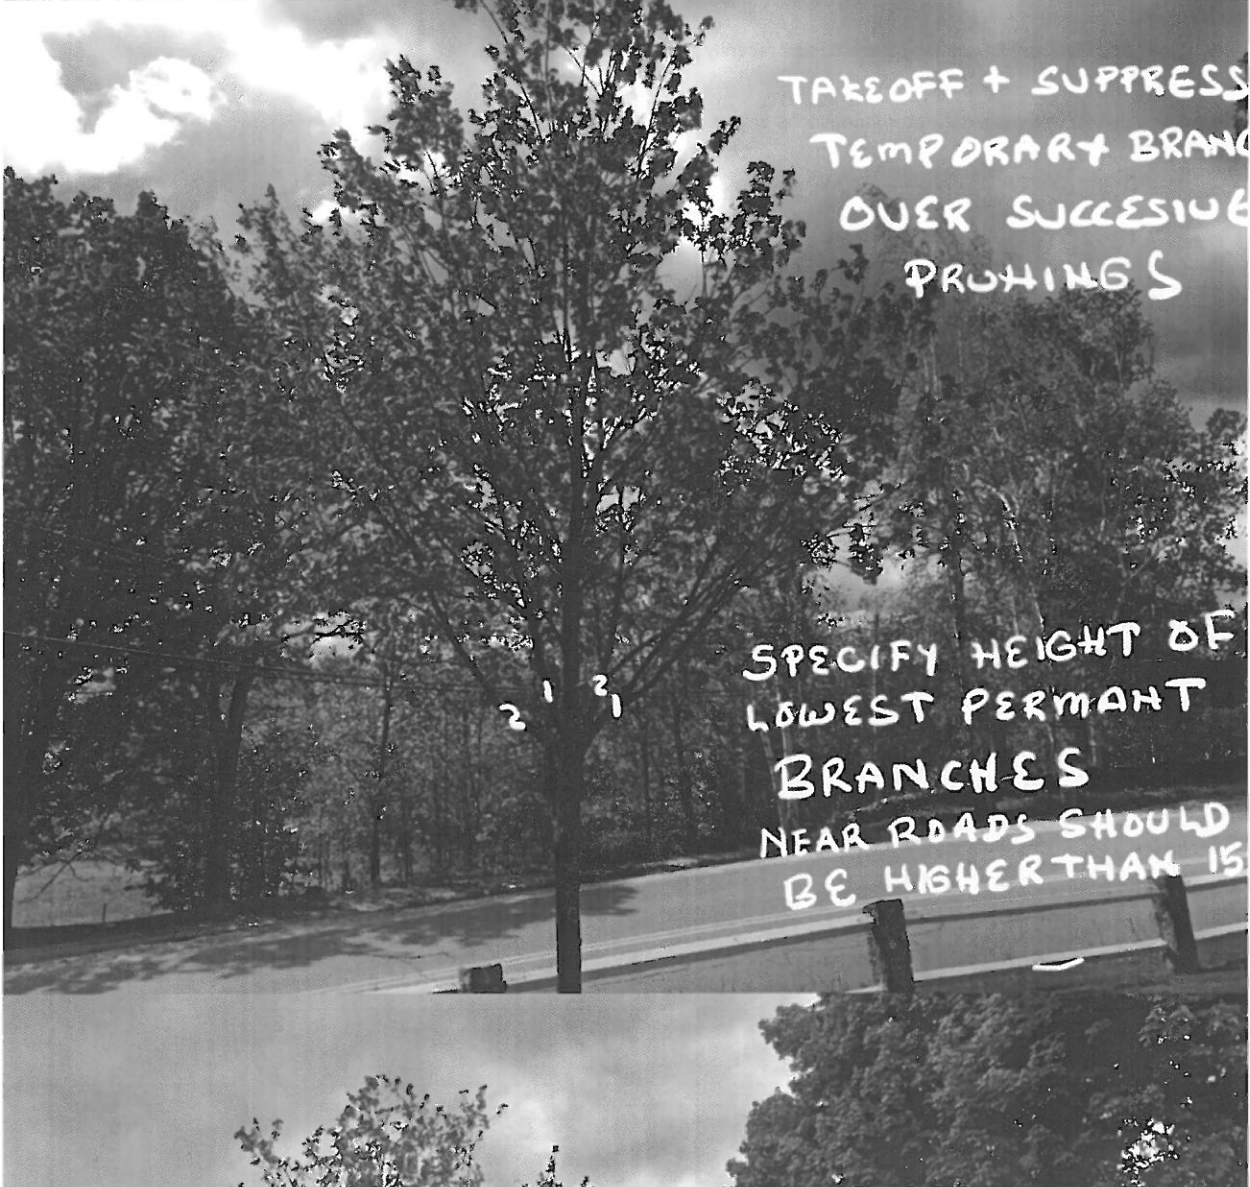 TAKEOFF + SUPPRESS
TEMPORARY BRANC
OVER SUCCESIVE
PRUNINGS
1 2
2 1
SPECIFY HEIGHT OF
LOWEST PERMANT
BRANCHES
NEAR ROADS SHOULD
BE HIGHER THAN 15